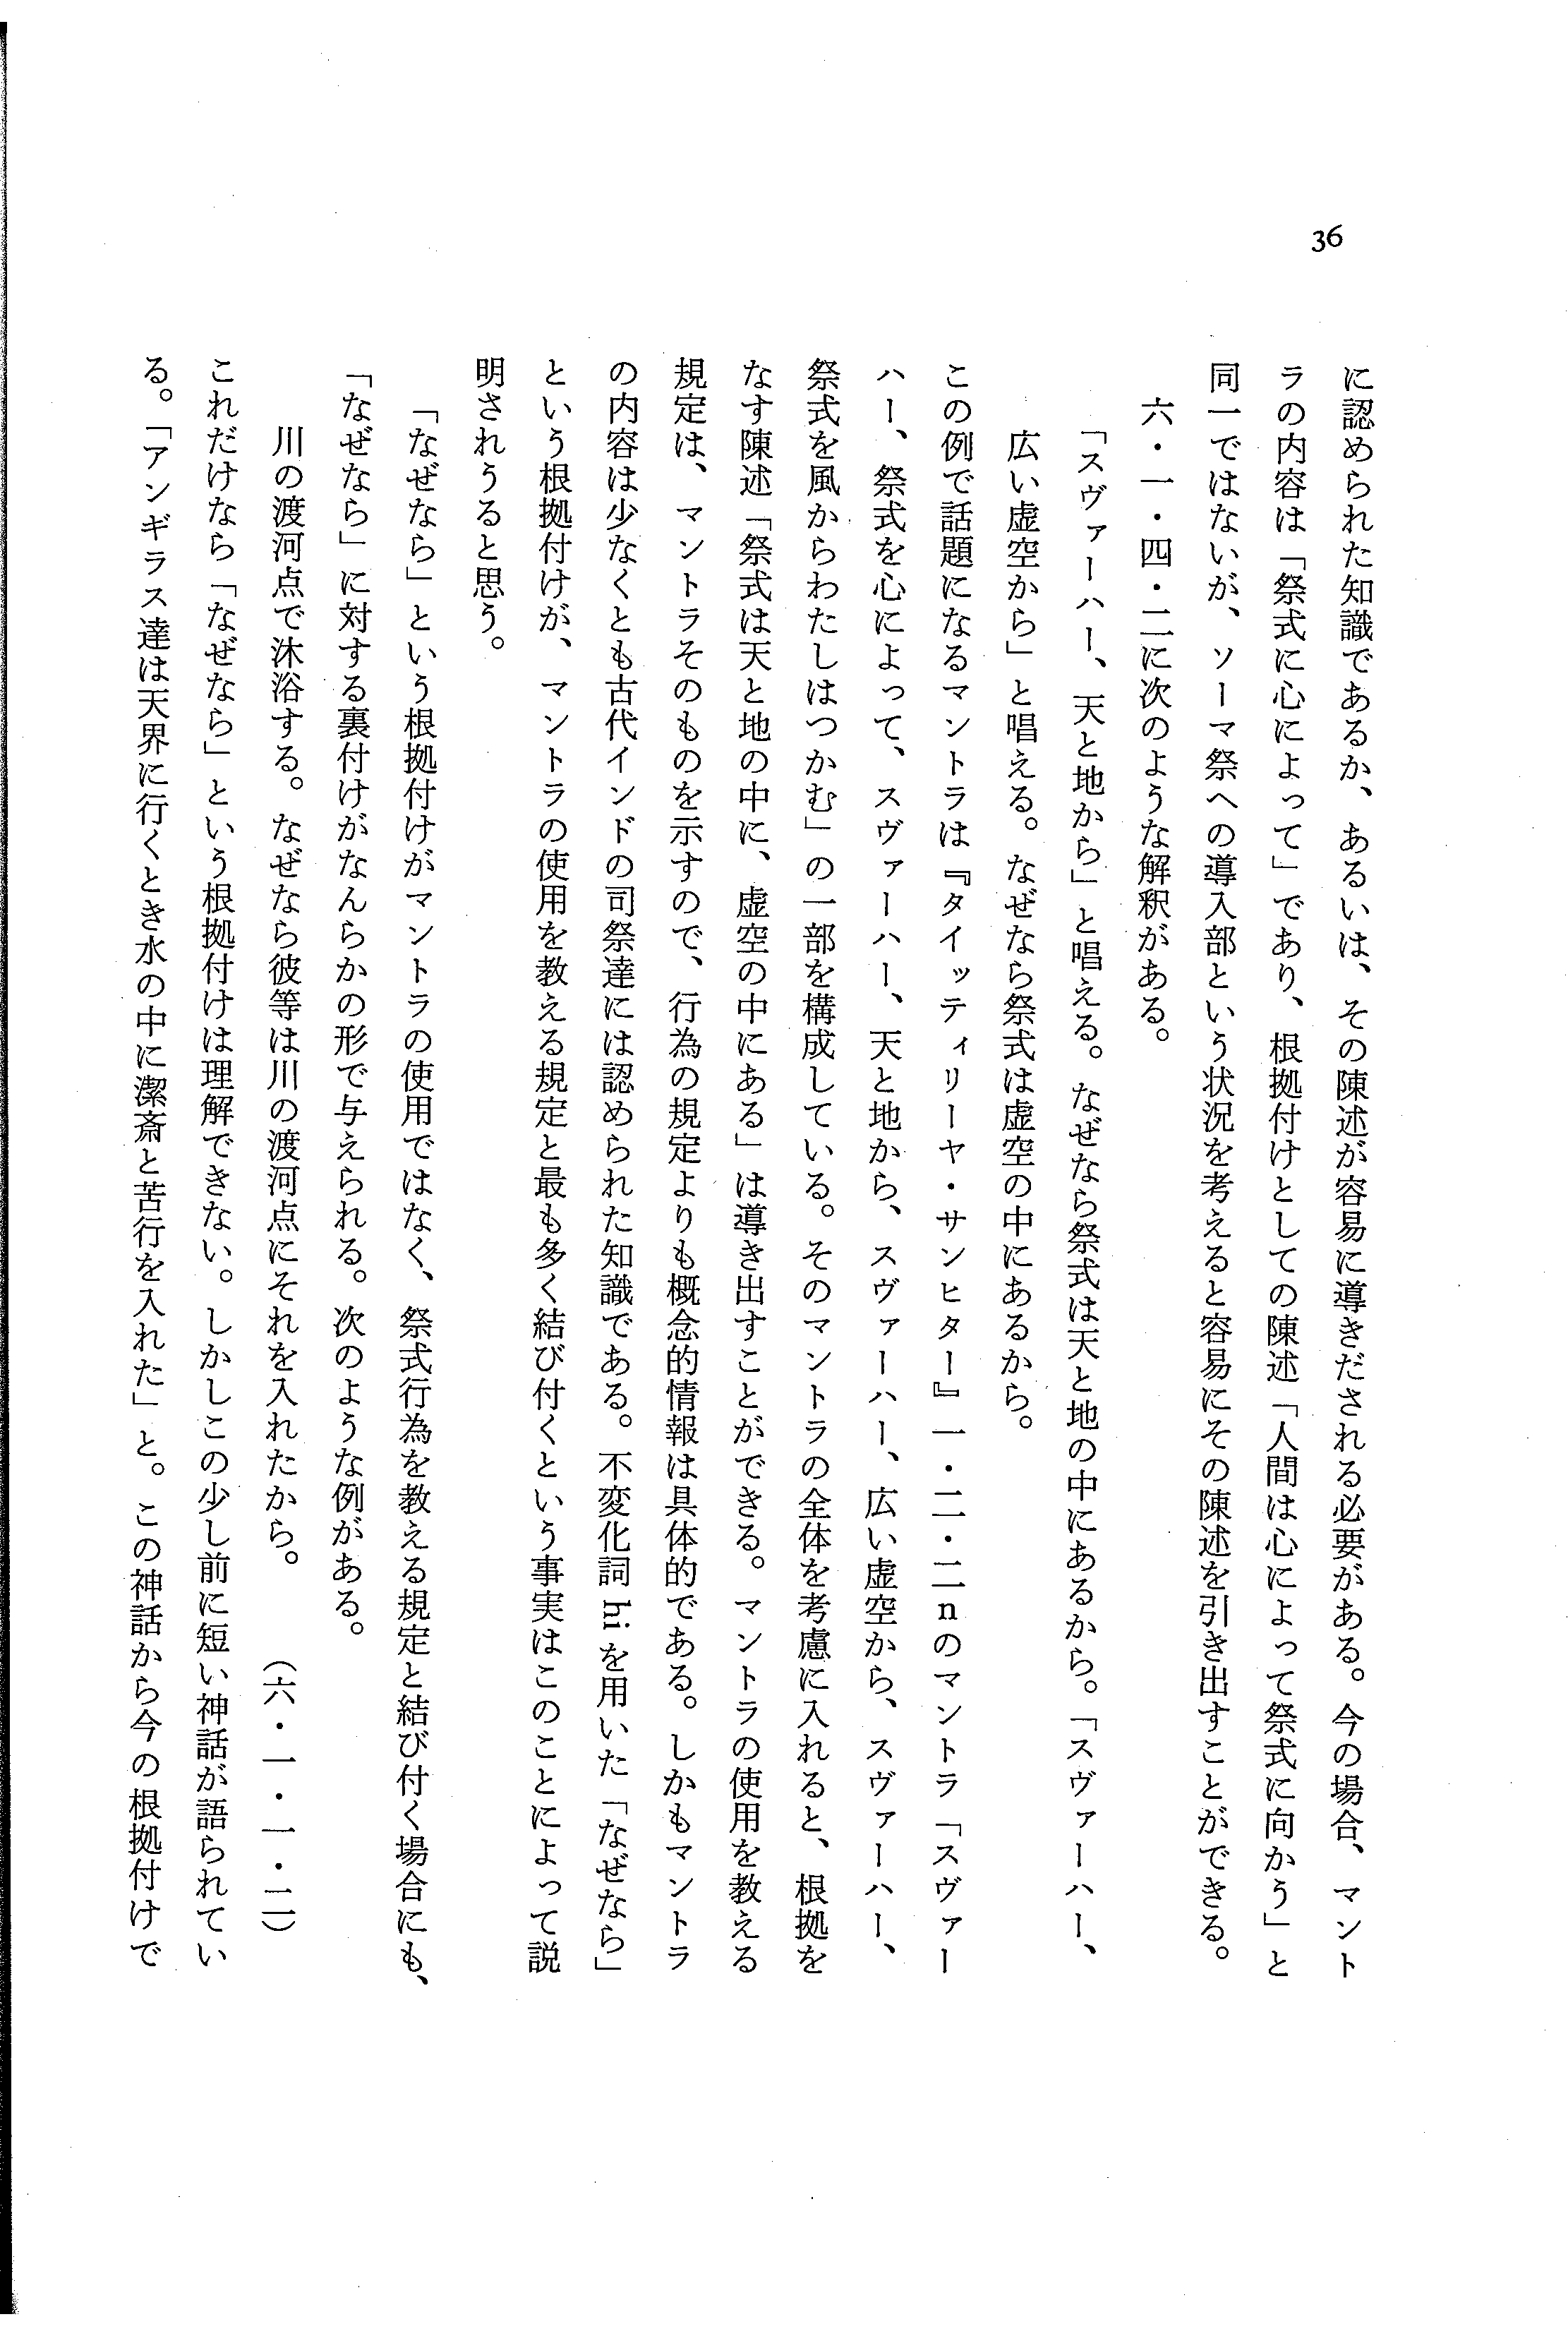 36
に認められた知識であるか、あるいは、その陳述が容易に導きだされる必要がある。今の場合、マント
ラの内容は「祭式に心によって」であり、根拠付けとしての陳述「人間は心によって祭式に向かう」と
同一ではないが、ソーマ祭への導入部という状況を考えると容易にその陳述を引き出すことができる。
六・一・四・二に次のような解釈がある。
「スヴァーハー、天と地から」と唱える。なぜなら祭式は天と地の中にあるから。「スヴァーハー、
広い虚空から」と唱える。なぜなら祭式は虚空の中にあるから。
この例で話題になるマントラは『タイッティリーヤ・サンヒター』一・二・二nのマントラ「スヴァー
ハー、祭式を心によって、スヴァーハー、天と地から、スヴァーハー、広い虚空から、スヴァーハー、
祭式を風からわたしはつかむ」の一部を構成している。そのマントラの全体を考慮に入れると、根拠を
なす陳述「祭式は天と地の中に、虚空の中にある」は導き出すことができる。マントラの使用を教える
規定は、マントラそのものを示すので、行為の規定よりも概念的情報は具体的である。しかもマントラ
の内容は少なくとも古代インドの司祭達には認められた知識である。不変化詞 hi を用いた「なぜなら」
という根拠付けが、マントラの使用を教える規定と最も多く結び付くという事実はこのことによって説
明されうると思う。
「なぜなら」という根拠付けがマントラの使用ではなく、祭式行為を教える規定と結び付く場合にも、
「なぜなら」に対する裏付けがなんらかの形で与えられる。次のような例がある。
川の渡河点で沐浴する。なぜなら彼等は川の渡河点にそれを入れたから。 （六・一・一・二）
これだけなら「なぜなら」という根拠付けは理解できない。しかしこの少し前に短い神話が語られてい
る。「アンギラス達は天界に行くとき水の中に潔斎と苦行を入れた」と。この神話から今の根拠付けで